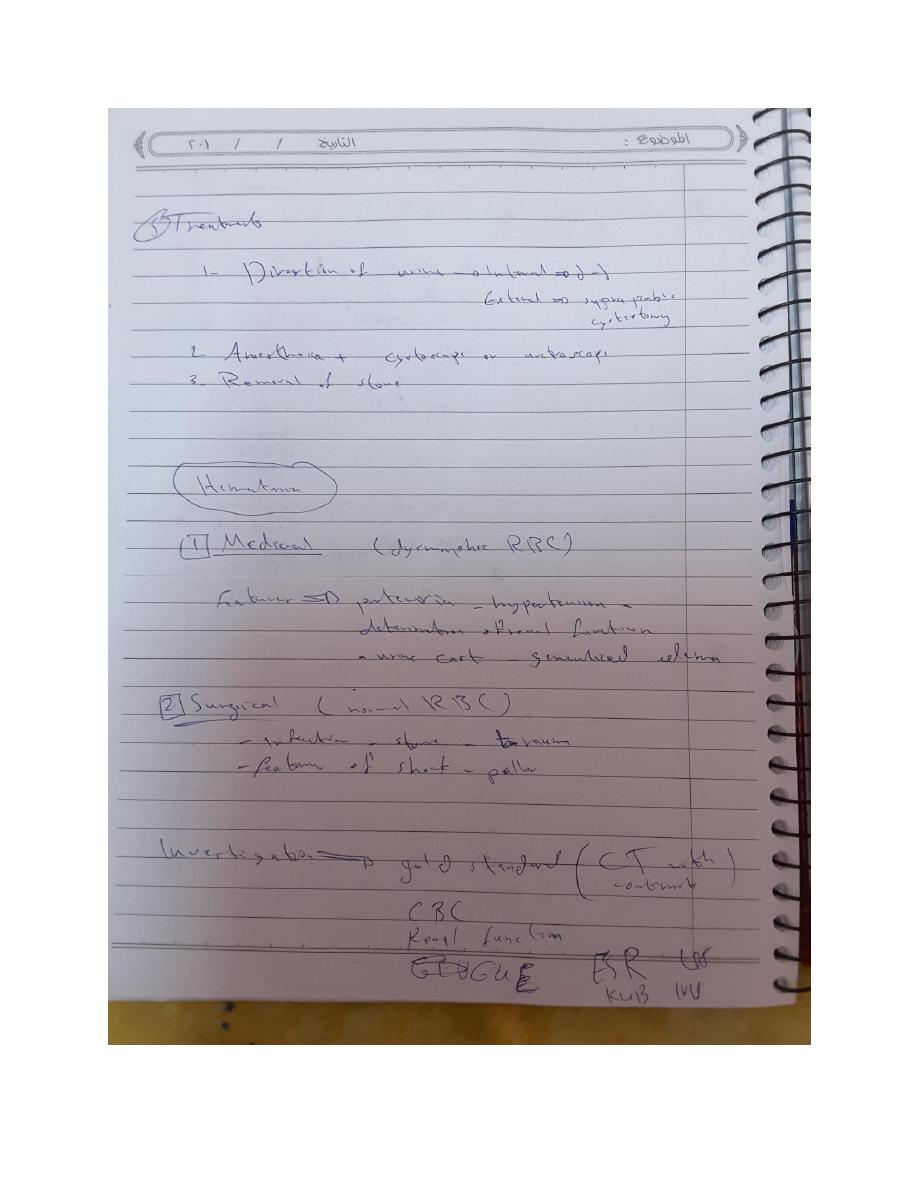 الموضوع :
التاريخ / / ٢٠١
5 Treatment
1- Divertion of urine → Internal ⇒ J-J
External ⇒ suprapubic
cystectomy
2- Anaesthesia + cystoscope or
3- Removal of stone
Hematuria
1 Medical (dysmorphic RBC)
Features ⇒ proteinuria - hypertension -
deterioration of renal function
- urine cast - generalized edema
2 Surgical (normal RBC)
- infection - stone - trauma
- feature of shock - pallor
Investigation ⇒ gold standard (CT with
contrast)
CBC
Renal function
GUE ESR US
KUB IVU